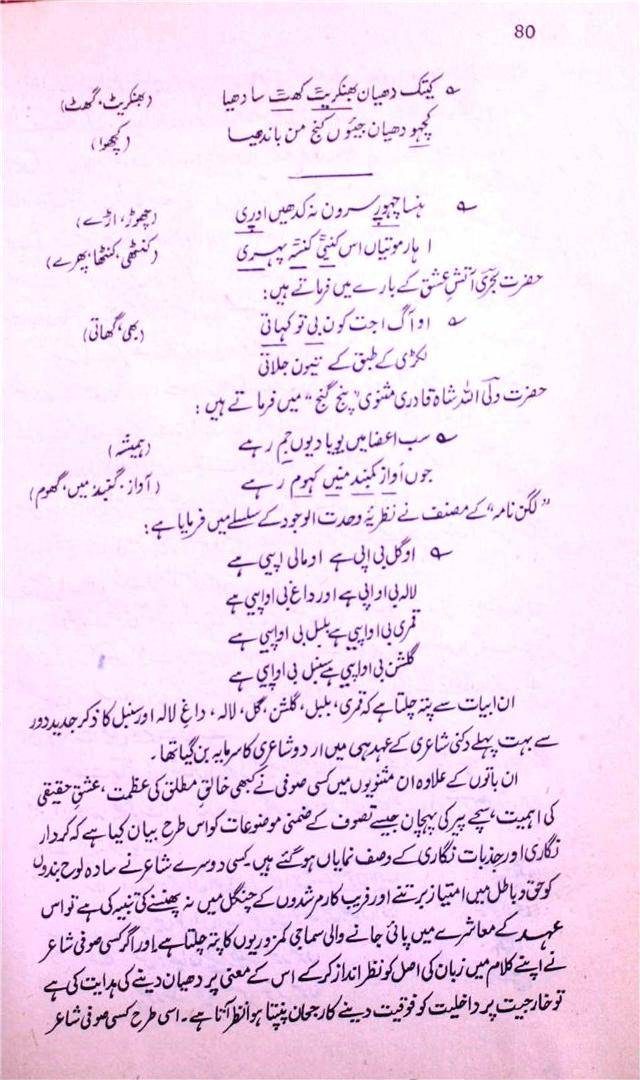 80
؎ کیتک دھیان بھنکریت کھت سادھیا (بھنکریٹ، گھٹ)
کچھو دھیان جیئوں کنج من باندھیا (کچھوا)
؎ ہنسا چھور سرون نہ کدھیں اوری (چھوڑ، اڑے)
اہار موتیاں اس کنتی کنتہ پہری (کنٹھی، کنٹھا، پھرے)
حضرت بحری آتشِ عشق کے بارے میں فرماتے ہیں:
؎ او آگ اجت کون بی تو کہاتی (بھی، گھاتی)
لکڑی کے طبق کے تیون جلاتی
حضرت ولی اللہ شاہ قادری مثنوی "پنج گنج" میں فرماتے ہیں:
؎ سب اعضا میں یو یاد یوں جم رہے (ہمیشہ)
جوں آواز کنبد منیں کہوم رہے (آواز، گنبد میں، گھوم)
"لگن نامہ" کے مصنف نے نظریۂ وحدت الوجود کے سلسلے میں فرمایا ہے:
؎ او گل بی اپی ہے او مالی اپیی ہے
لالہ بی او اپی ہے اور داغ بی او اپیی ہے
قمری بی او اپیی ہے بلبل بی او اپیی ہے
گلشن بی او اپیی ہے سنبل بی او اپیی ہے
ان ابیات سے پتہ چلتا ہے کہ قمری، بلبل، گلشن، گل، لالہ، داغِ لالہ اور سنبل کا ذکر جدید دور
سے بہت پہلے دکنی شاعری کے عہد ہی میں اردو شاعری کا سرمایہ بن گیا تھا۔
ان باتوں کے علاوہ ان مثنویوں میں کسی صوفی نے کبھی خالقِ مطلق کی عظمت، عشقِ حقیقی
کی اہمیت، سچے پیر کی پہچان جیسے تصوف کے ضمنی موضوعات کو اس طرح بیان کیا ہے کہ کردار
نگاری اور جذبات نگاری کے وصف نمایاں ہوگئے ہیں۔ کسی دوسرے شاعر نے سادہ لوح بندوں
کو حق و باطل میں امتیاز برتنے اور فریب کار مرشدوں کے چنگل میں نہ پھنسنے کی تنبیہ کی ہے تو اس
عہد کے معاشرے میں پائی جانے والی سماجی کمزوریوں کا پتہ چلتا ہے یا اور اگر کسی صوفی شاعر
نے اپنے کلام میں زبان کی اصل کو نظر انداز کرکے اس کے معنی پر دھیان دینے کی ہدایت کی ہے
تو خارجیت پر داخلیت کو فوقیت دینے کا رجحان پنپتا ہوا نظر آتا ہے۔ اسی طرح کسی صوفی شاعر